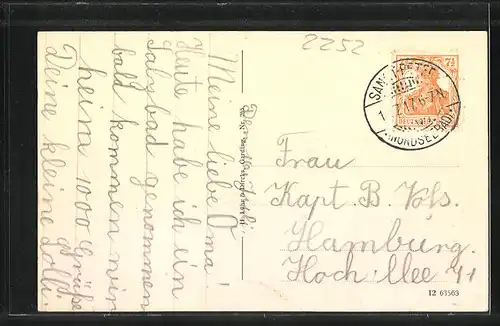 2252
Meine liebe Oma!
Heute habe ich ein
Salzbad genommen
bald kommen wir
heim 1000 Grüße
Deine kleine Lolli.
7½
SANCT PETER
1. 7.17. 6-7N.
(NORDSEEBAD)
Frau
Kapt. B. Vols.
Hamburg.
Hoch: Allee 41
12 63563